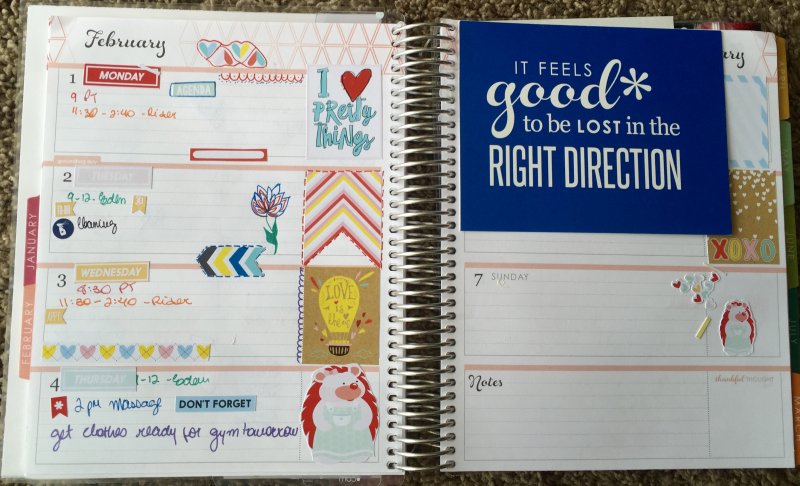 February
1 MONDAY
AGENDA
9 PT
11:30-2:40-Rider
I
Pretty
THINGS
2 TUESDAY
9-12-Eoden
3 WEDNESDAY
8:30 PT
11:30-2:40-Rider
LOVE
is the
4 THURSDAY
9-12-Eoden
2 pm massage DON'T FORGET
get clothes ready for gym tomorrow
JANUARY
FEBRUARY
IT FEELS
good*
to be LOST in the
RIGHT DIRECTION
XOXO
7 SUNDAY
Notes
thankful THOUGHT